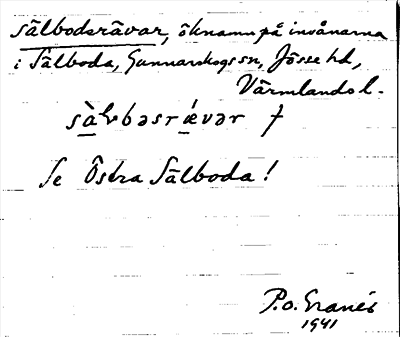 sälbodsrävar, öknamn på invånarna
i Sälboda, Gunnarskogs sn, Jösse hd,
Värmlands l.
Se Östra Sälboda!
P.o. Granér
1941